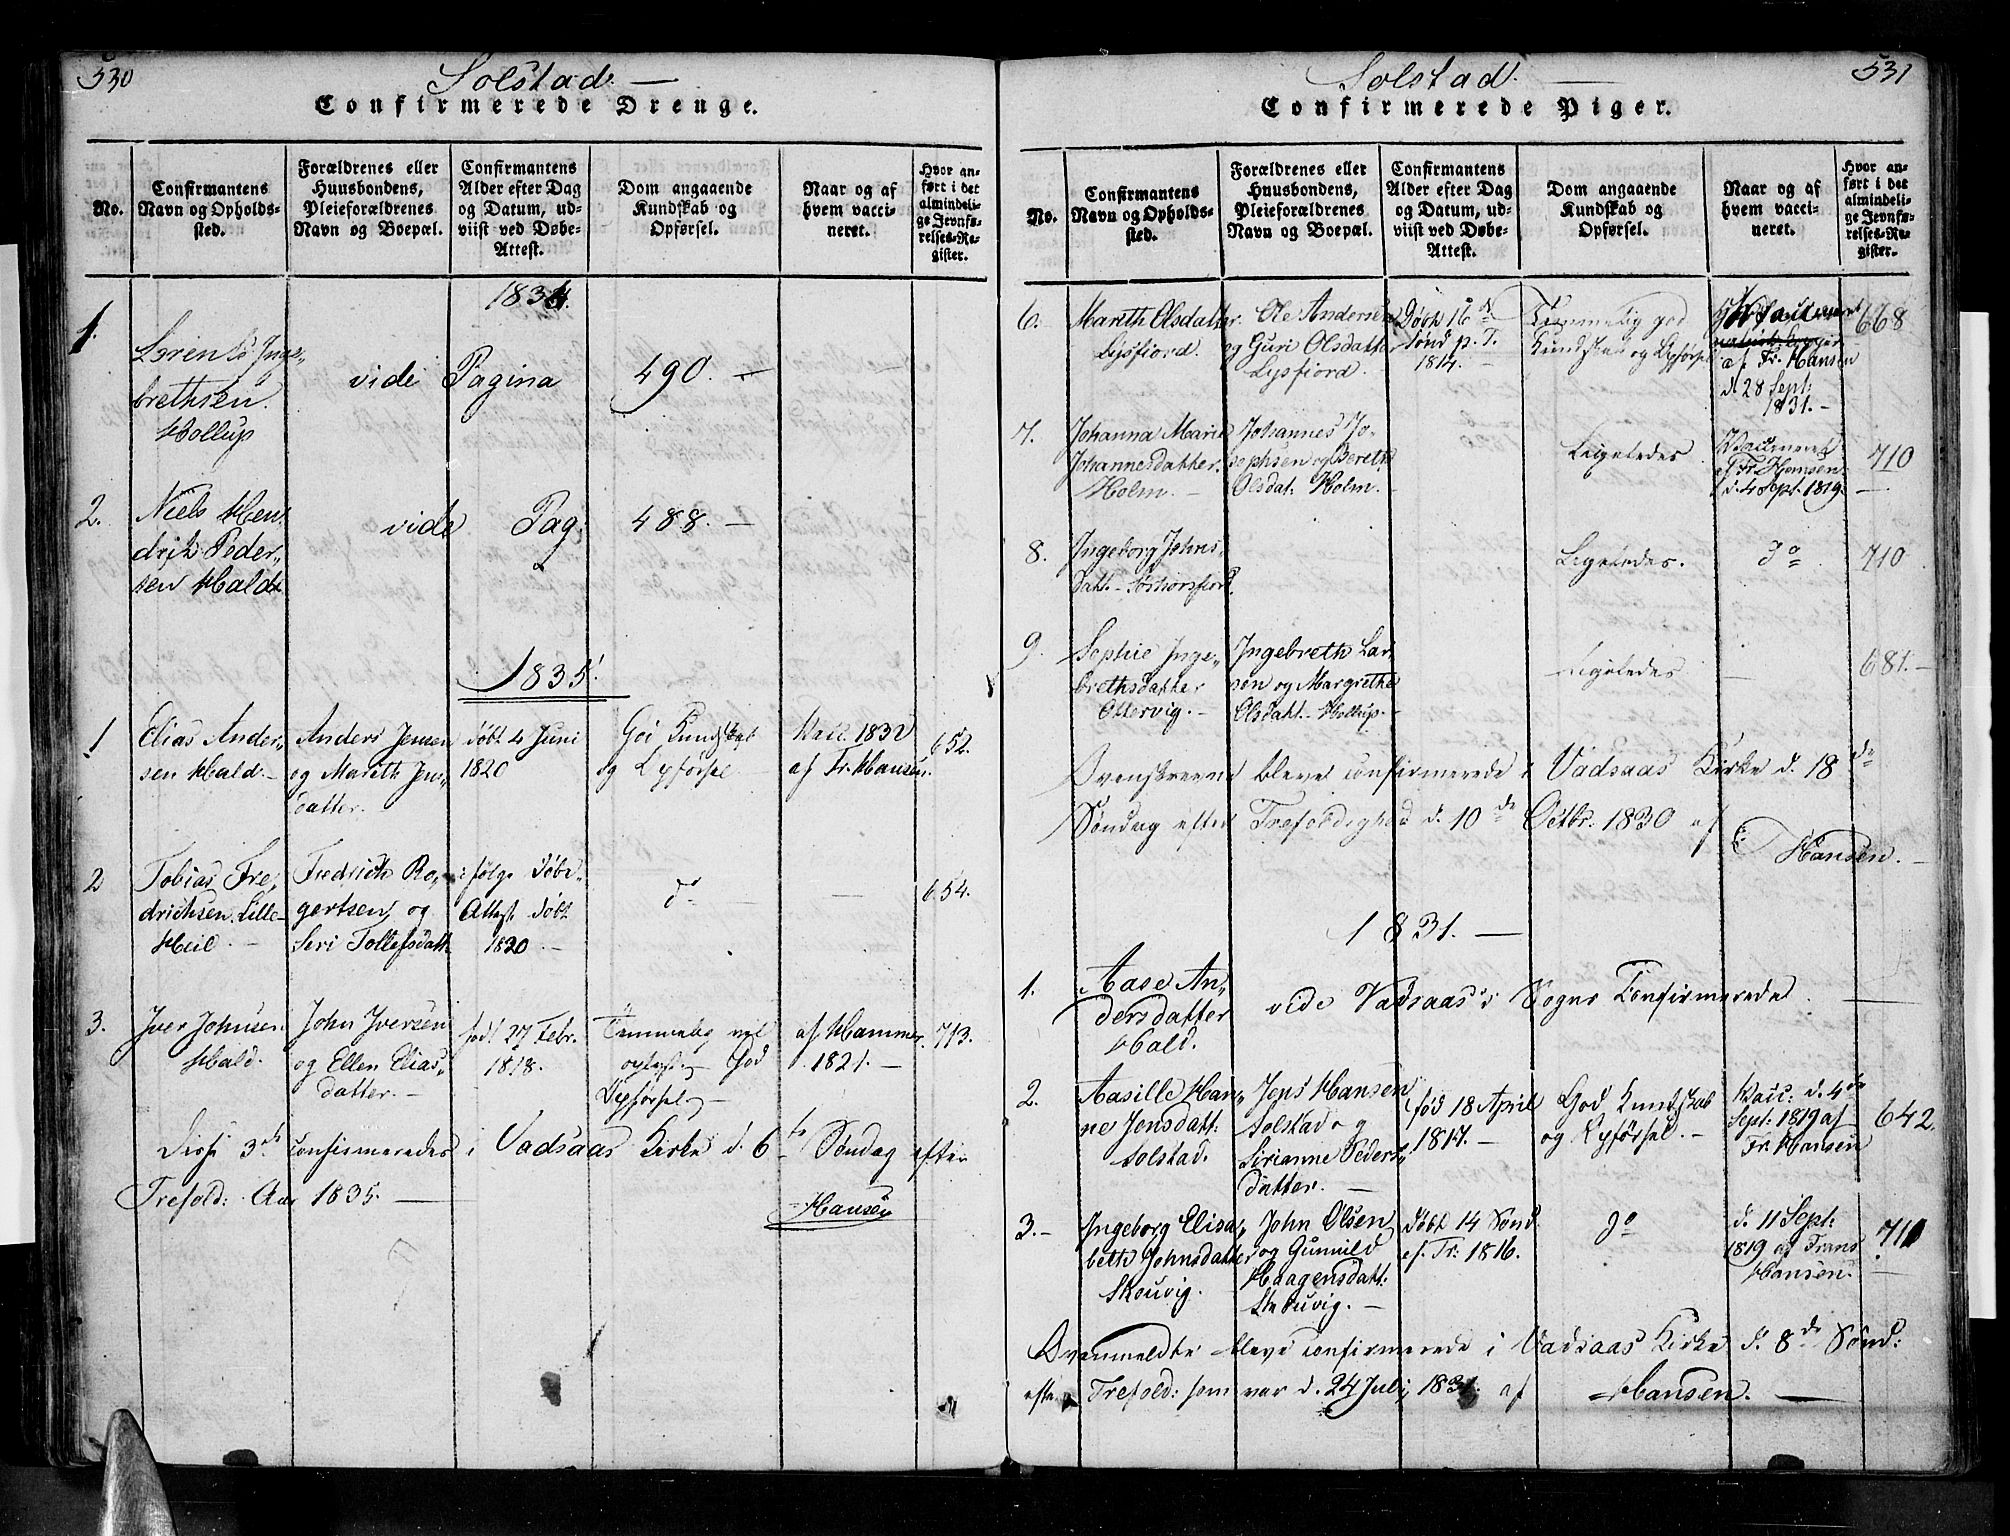 530
Solstad. —
Confirmerede Drenge.
No.
Confirmantens
Navn og Opholds-
sted.
Forældrenes eller
Huusbondens,
Pleieforældrenes
Navn og Boepæl.
Confirmantens
Alder efter Dag
og Datum, ud-
viist ved Døbe-
Attest.
Dom angaaende
Kundskab og
Opførsel.
Naar og af
hvem vacci-
neret.
Hvor an-
ført i det
almindeli-
ge Jevnfø-
relses-Re-
gister.
1834.
1.
Lorents Inge-
brethsen.
Hollup
vide Pagina 490. —
2.
Niels Hen-
drik Peder-
sen Hald
vide Pag: 488. —
1835.
1
Elias Ander-
sen Hald. —
Anders Jensen
og Marith Jens-
datter.
døbt 4 Juni
1820
God Kundskab
og Opførsel
Vacc. 1832
af Fr. Hansen.
652.
2
Tobias Fre-
drichsen. Lille-
Heil. —
Fredrich Ro-
gertsen, og
Seri Tollefsdatt.
ifølge Døbe-
Attest døbt
1820 —
do
—
654.
3.
Iver Johnsen
Hald.
John Iversen
og Ellen Elias-
datter. —
født 27 Febr.
1818.
Temmelig vel
oplyst. — God
Opførsel. —
af Hammer.
1821. —
713.
Disse 3de confirmeredes i Vadsaas Kirke d. 6te Søndag efter
Trefold: Aar 1835. —
Hansen
531
Solstad. —
Confirmerede Piger.
No.
Confirmantens
Navn og Opholds-
sted.
Forældrenes eller
Huusbondens,
Pleieforældrenes
Navn og Boepæl.
Confirmantens
Alder efter Dag
og Datum, ud-
viist ved Døbe-
Attest.
Dom angaaende
Kundskab og
Opførsel.
Naar og af
hvem vacci-
neret.
Hvor an-
ført i det
almindeli-
ge Jevnfø-
relses-Re-
gister.
6.
Mareth Olsdatter.
Lysfiord.
Ole Andersen
og Guri Olsdatter
Lysfiord.
Døbt 16de
Sønd p. T.
1814. —
Temmelig god
Kundskab og Opførsel
af Fr. Hansen
d. 28 Sept:
1831. —
668
7.
Johanna Marie
Johannesdatter.
Holm. —
Johannes Jo-
sephsen og Bereth
Olsdat: Holm. —
Ligeledes
Vaccineret
af Fr. Hansen
d. 4 Sept. 1819.
710
8.
Ingeborg Johns-
Datt. —
Ligeledes.
do
710
9.
Sophie Inge-
brethsdatter
Ottervig. —
Ingebreth Lar-
sen og Margrethe
Olsdatt. — Hollup. —
Ligeledes
—
681. —
Ovenskrevne bleve confirmerede i Vadsaas Kirke d. 18de
Søndag efter Trefoldighed d. 10de Octbr: 1830 af
Hansen. —
1831. —
1.
Aase An-
dersdatter
Hald.
vide Vadsaas's Sogns Confirmerede. —
2.
Aasille Han-
ne Jensdatt:
Solstad.
Jens Hansen
Solstad og
Sirianne Peders-
datter. —
fød 18 April
1817. —
God Kundskab
og Opførsel. —
Vacc: d. 4de
Sept: 1819 af
Fr. Hansen
642.
3. —
Ingeborg Elisa-
beth Johnsdatter
Skeuvig.
John Olsen
og Gunnild
Haagensdatt:
Skeuvig. —
døbt 14 Sønd.
ef. Tr: 1816.
do
d. 11 Sept:
1819 af Frans
Hansen.
711
Ovenmeldte bleve confirmerede i Vadsaas Kirke d. 8de Sønd:
efter Trefold: som var d. 24 Juli 1831. af Hansen. —